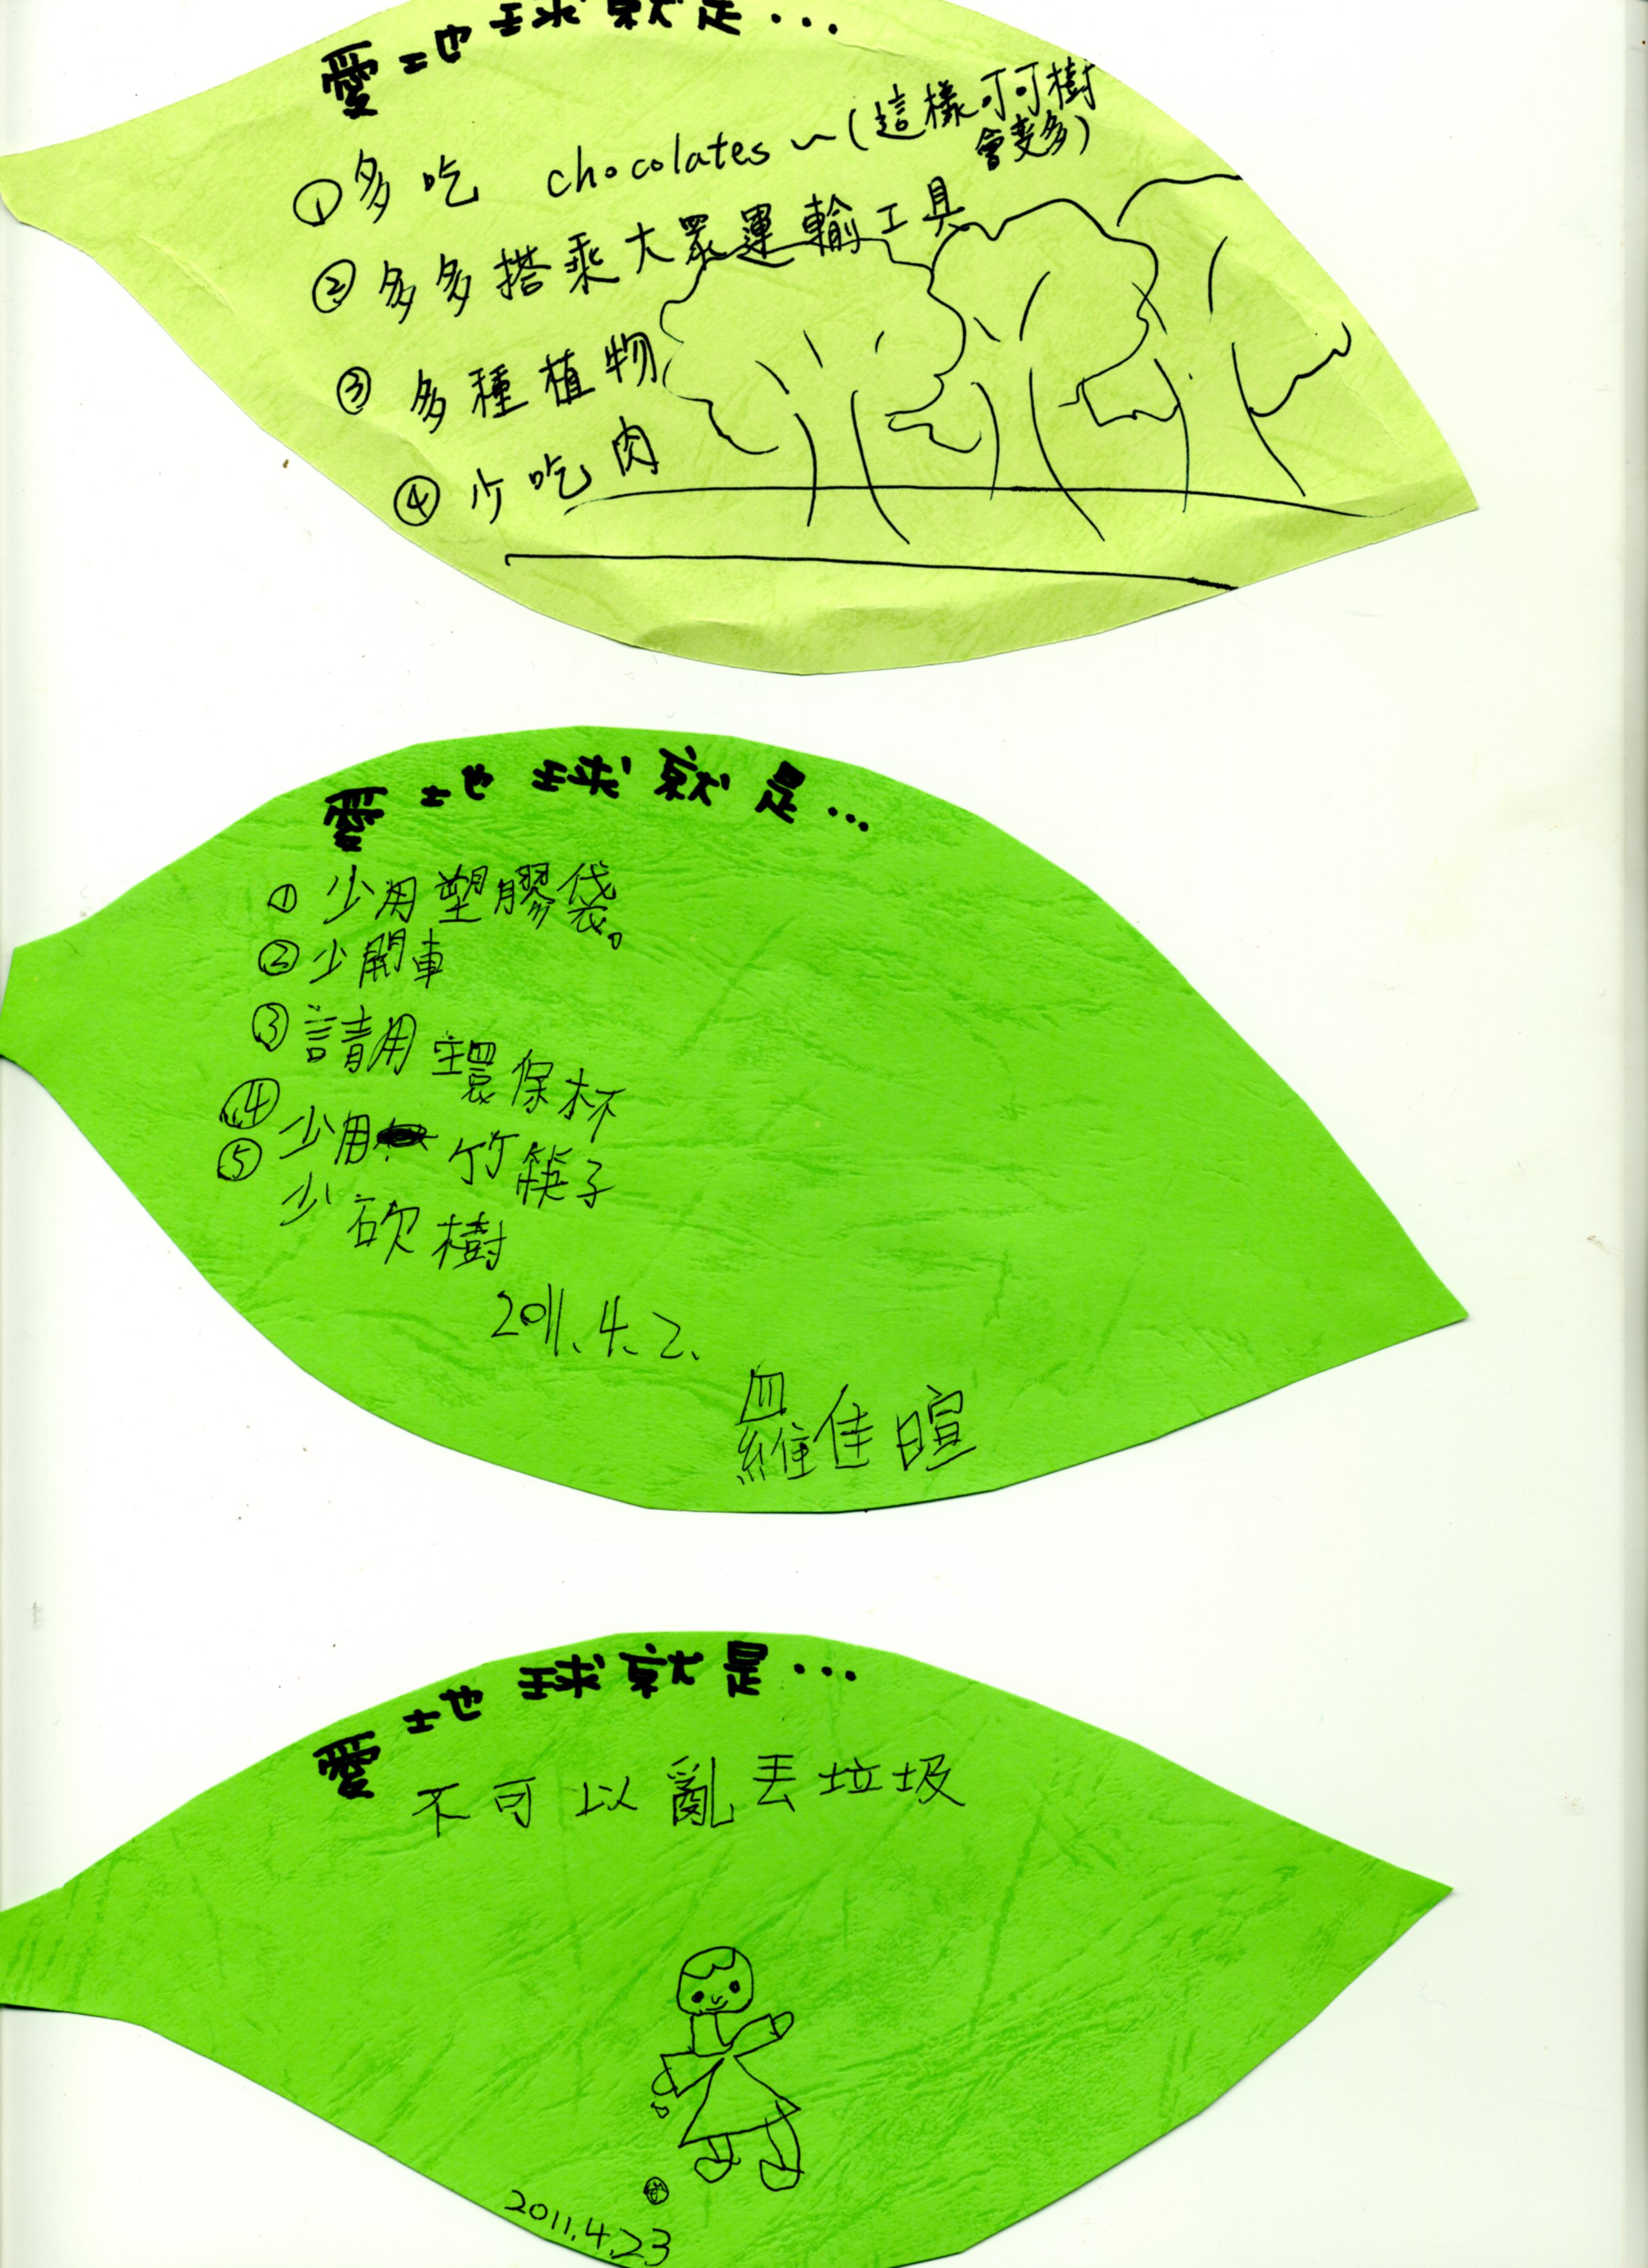 愛地球就是...
①多吃 chocolates~(這樣可可樹
會变多)
②多多搭乘大眾運輸工具
③多種植物
④少吃肉
愛地球就是...
①少用塑膠袋。
②少開車
③請用環保杯
④少用竹筷子
⑤少砍樹
2011.4.2.
羅佳暄
愛地球就是...
不可以亂丟垃圾
2011.4.23